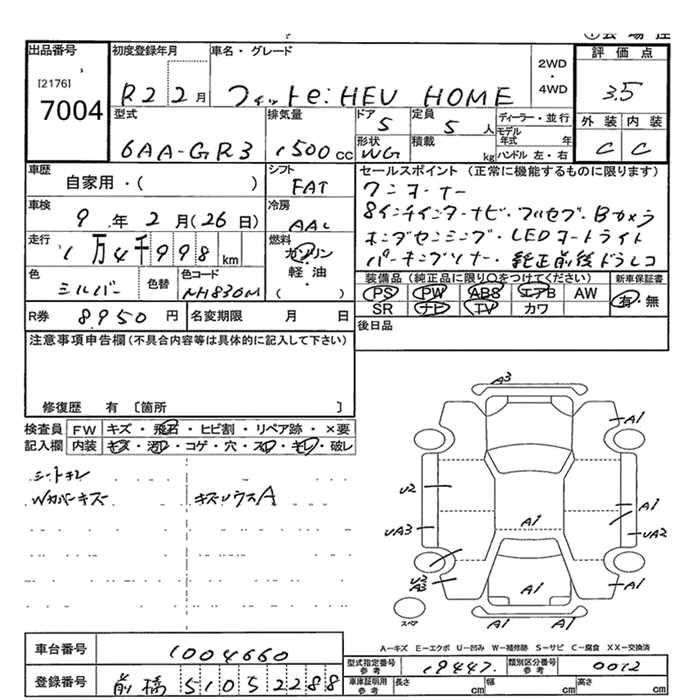 ①会場控
出品番号 初度登録年月 車名・グレード 評価点
[2176] 7004 R2 2月 フィットe:HEV HOME 2WD・4WD 3.5
型式 排気量 ドア 定員 ディーラー・並行 外装 内装
6AA-GR3 1500cc 5 5人 モデル年式 年 C C
形状 WG 積載 kg ハンドル 左・右
車歴 シフト セールスポイント(正常に機能するものに限ります)
自家用・( ) FAT ワンオーナー
車検 冷房 8インチインターナビ・フルセグ・Bカメラ
9年2月(26日) AAC ホンダセンシング・LEDオートライト
走行 燃料 パーキングソナー・純正前後ドラレコ
1万4千998km ガソリン
軽・油
( )
色 色替 色コード 装備品(純正品に限り○をつけてください) 新車保証書
シルバー NH830M PS PW ABS エアB AW 有・無
SR ナビ TV カワ
R券 8,950円 名変期限 月 日 後日品
注意事項申告欄(不具合内容等は具体的に記入して下さい)
修復歴 有 〔箇所 〕
検査員 FW キズ・飛石・ヒビ割・リペア跡・×要
記入欄 内装 キズ・汚れ・コゲ・穴・スレ・キレ・破レ
シートキレ
Wカバーキズ キズソウスA
A3
A1 A1
U2 A1
UA3 A1 UA2
U2 A3 A1 A1
A1 A1
スペア
A-キズ E-エクボ U-凹み W-補修跡 S-サビ C-腐食 XX-交換済
車台番号 1004660
型式指定番号 参考 19447 類別区分番号 参考 0012
登録番号 前橋 510 5 2288
車庫証明用 参考 長さ cm 幅 cm 高さ cm